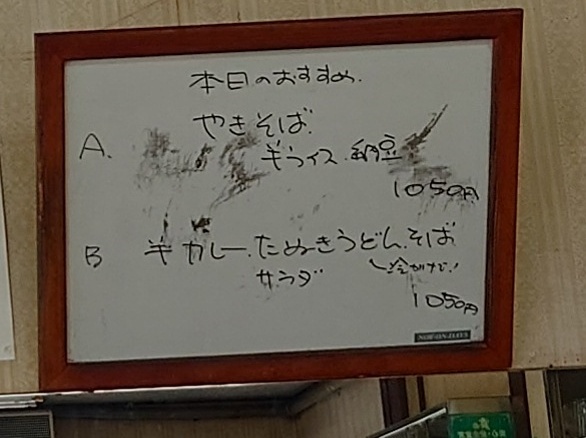 本日のおすすめ.
やきそば.
A.
半ライス.納豆
1050円
B 半カレー.たぬきうどん.そば
サラダ
1050円